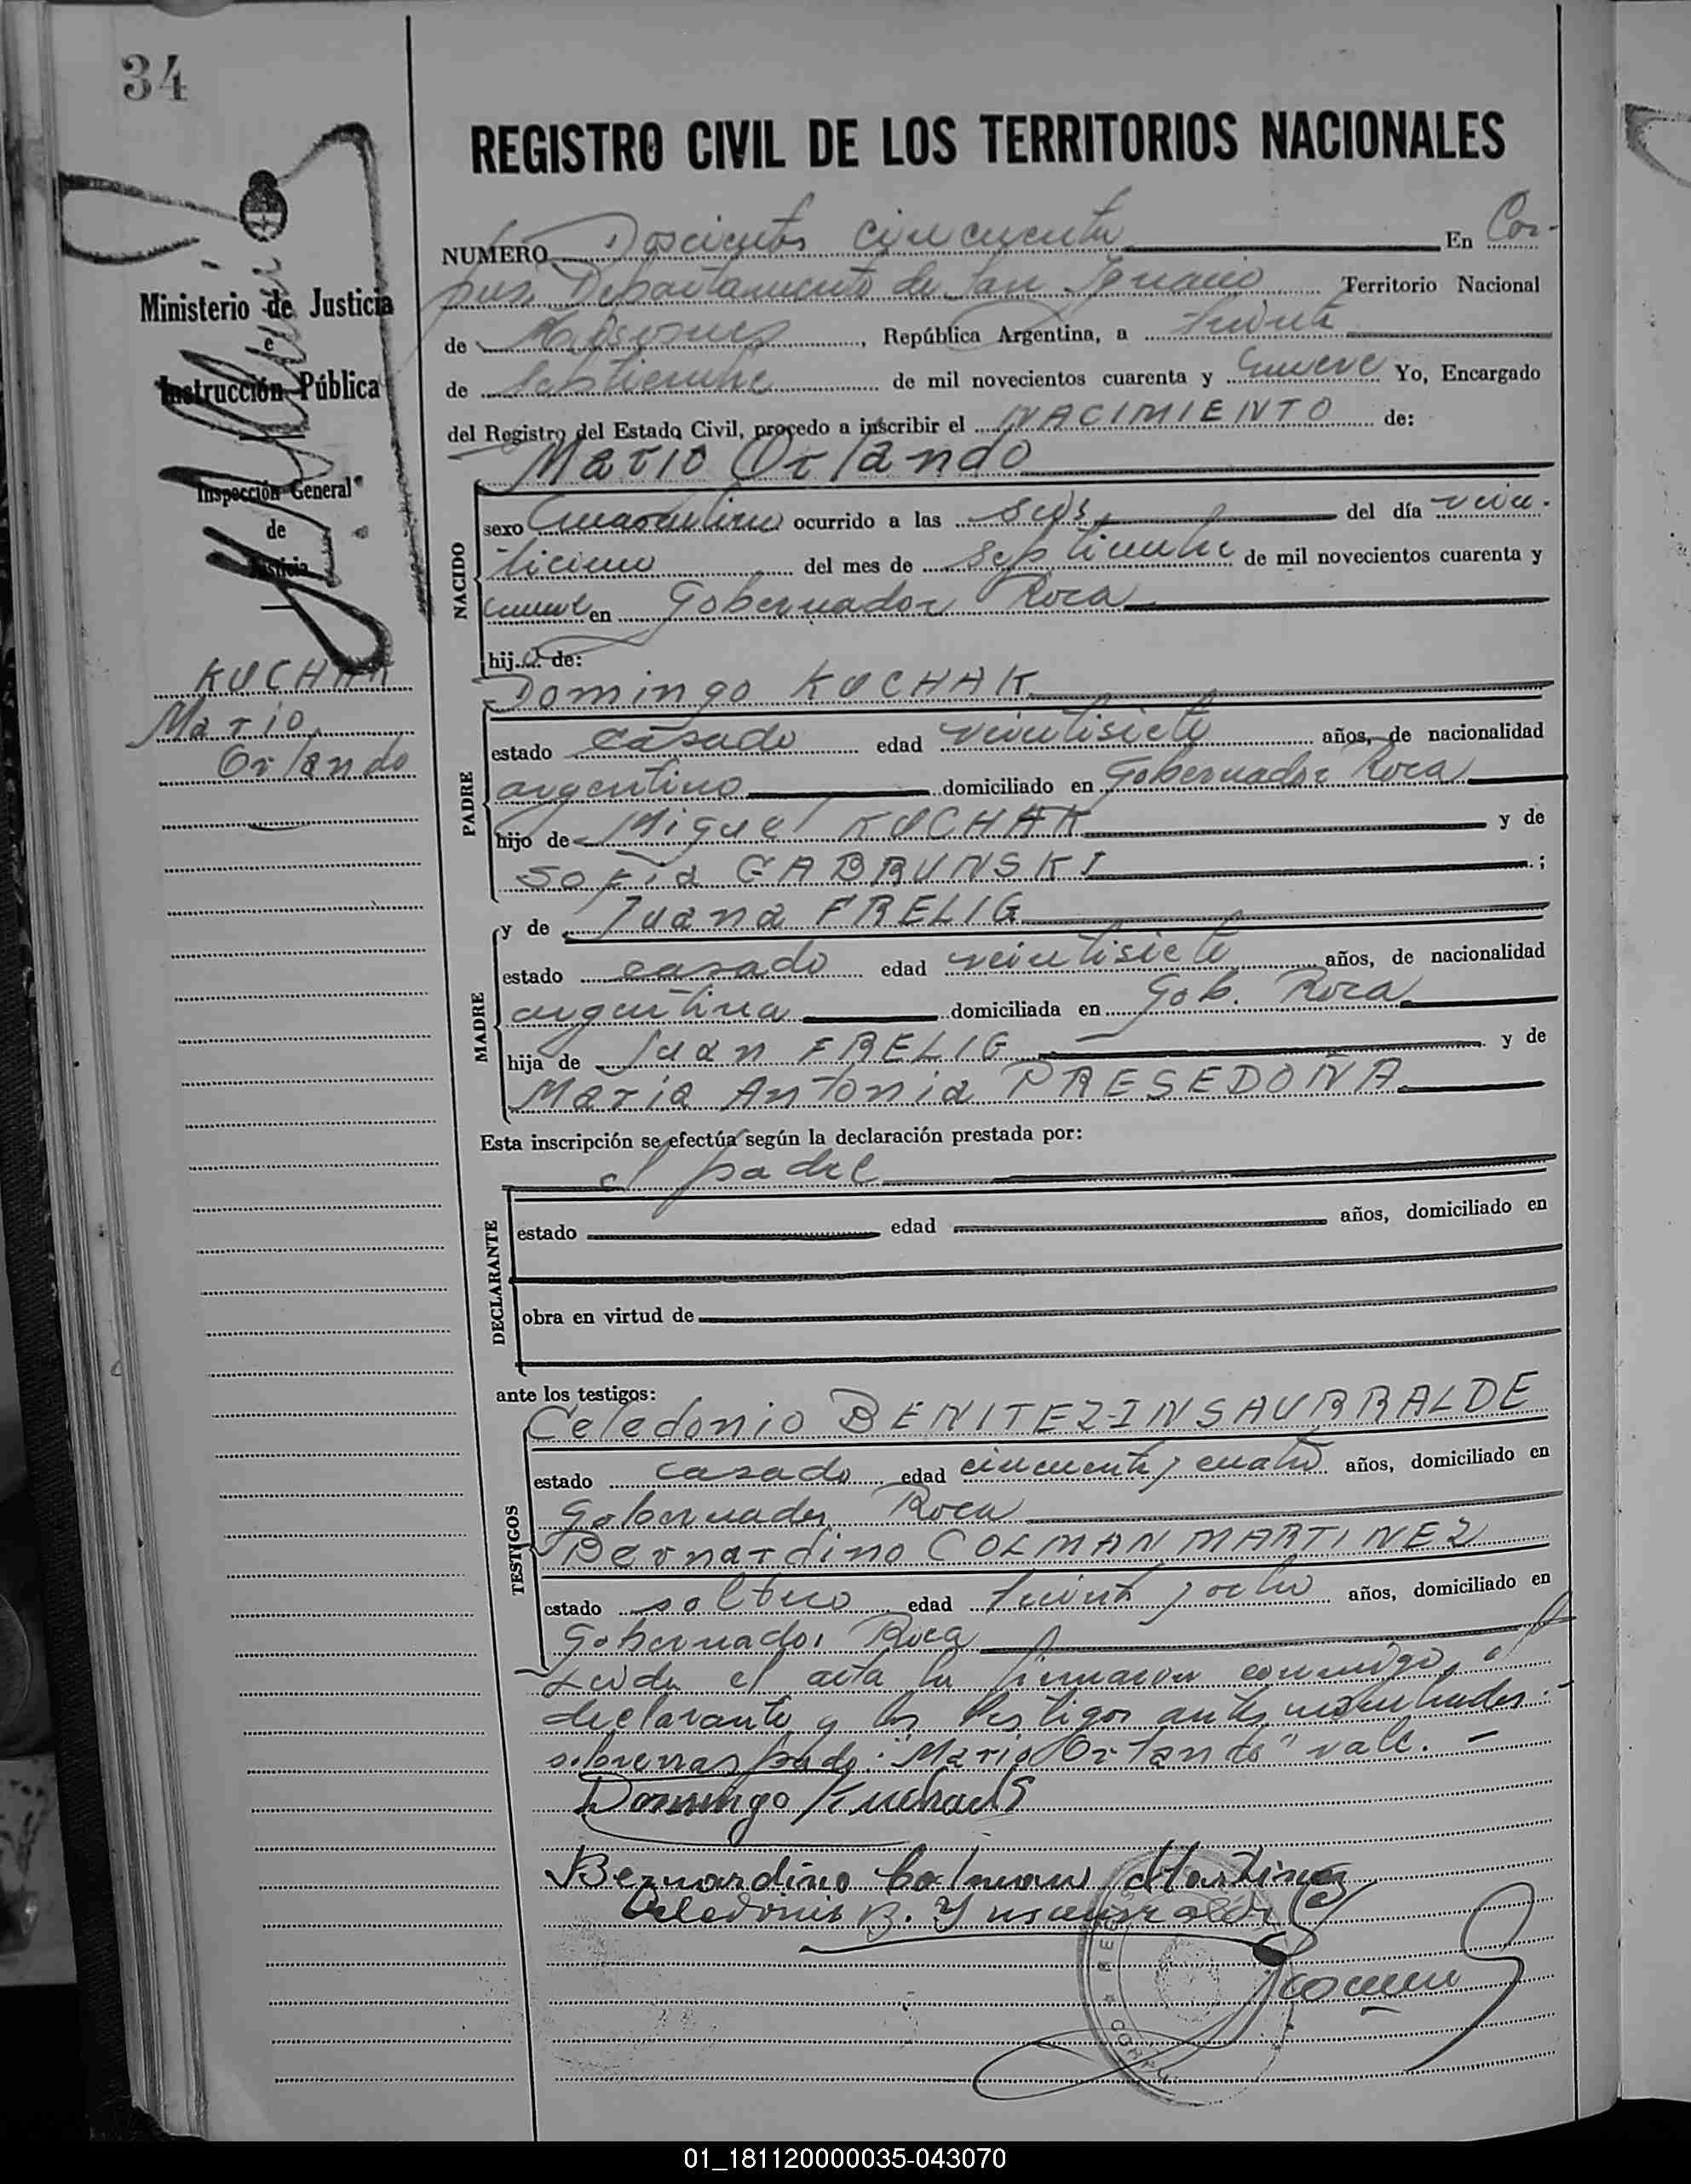 34
REGISTRO CIVIL DE LOS TERRITORIOS NACIONALES
NUMERO Doscientos cincuenta En Cor-
pus, Departamento de San Ignacio Territorio Nacional
de Misiones, República Argentina, a treinta
de Septiembre de mil novecientos cuarenta y nueve Yo, Encargado
del Registro del Estado Civil, procedo a inscribir el NACIMIENTO de:
Mario Orlando
Ministerio de Justicia
e
Instrucción Pública
Inspección General
de
Justicia
KUCHAK
Mario
Orlando
NACIDO
sexo masculino ocurrido a las seis del día vein-
ticinco del mes de Septiembre de mil novecientos cuarenta y
nueve en Gobernador Roca
hijo de:
PADRE
Domingo KUCHAK
estado casado edad veintisiete años, de nacionalidad
argentino domiciliado en Gobernador Roca
hijo de Miguel KUCHAK y de
Sofia GABRUNSKI ;
MADRE
y de Juana FRELIG
estado casado edad veintisiete años, de nacionalidad
argentina domiciliada en Gob. Roca
hija de Juan FRELIG y de
Maria Antonia PRESEDOÑA
Esta inscripción se efectúa según la declaración prestada por:
el padre
DECLARANTE
estado edad años, domiciliado en
obra en virtud de
ante los testigos:
TESTIGOS
Celedonio BENITEZ INSAURRALDE
estado casado edad cincuenta y cuatro años, domiciliado en
Gobernador Roca
Bernardino COLMAN MARTINEZ
estado soltero edad treinta y ocho años, domiciliado en
Gobernador Roca
Leida el acta la firmaron conmigo, el
declarante y los testigos antes nombrados.-
sobrerraspado: "Mario Orlando" vale. -
Domingo Kuchack
Bernardino Colman Martinez
Celedonio B. Ynsaurralde
01_181120000035-043070